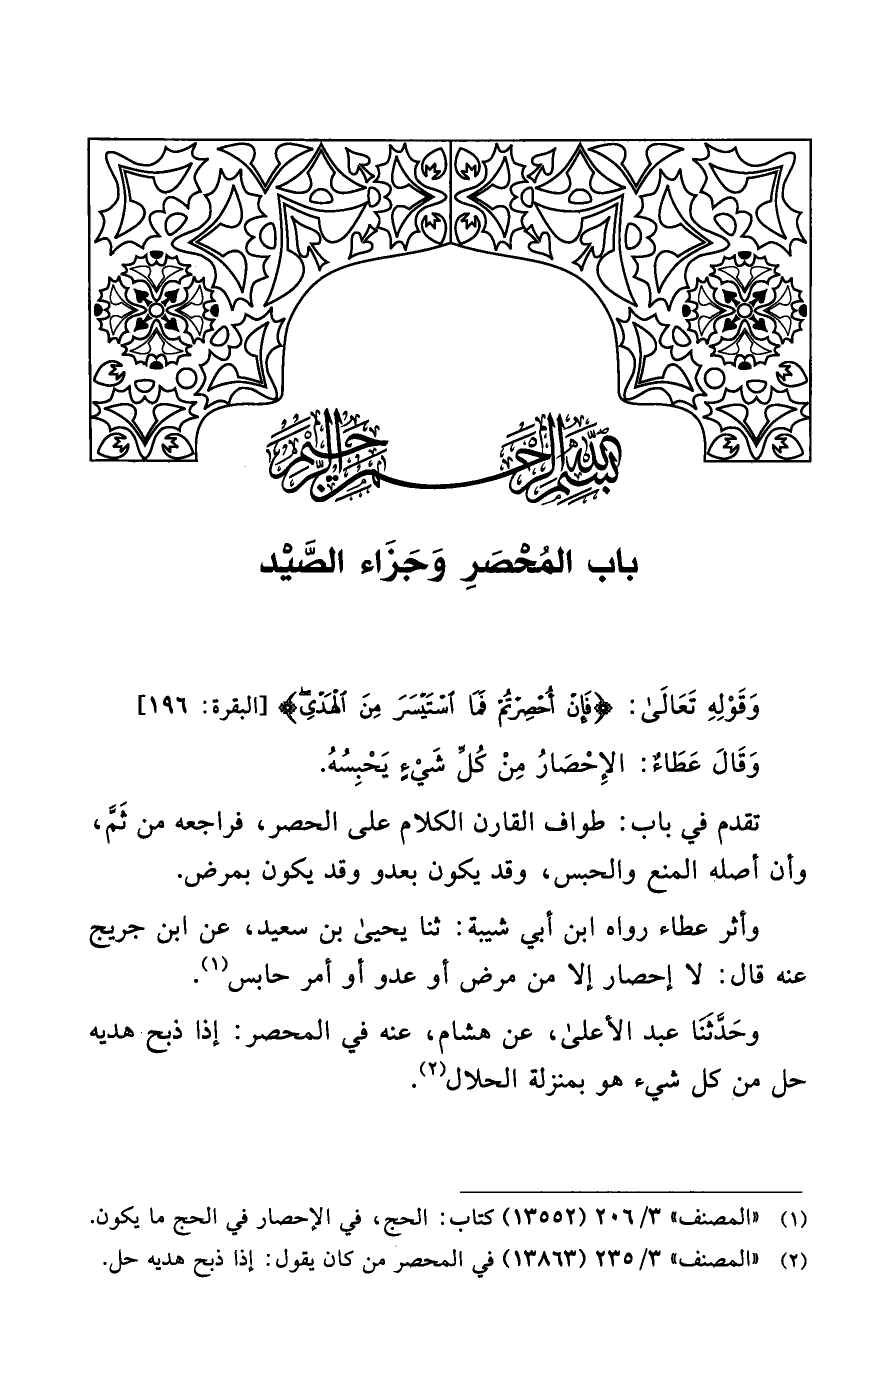 بسم الله الرحمن الرحيم
باب المُحْصَرِ وَجَزَاء الصَّيْد
وَقَوْلِهِ تَعَالَىٰ: ﴿فَإِنْ أُحْصِرْتُمْ فَمَا ٱسْتَيْسَرَ مِنَ ٱلْهَدْيِۖ﴾ [البقرة: ١٩٦]
وَقَالَ عَطَاءٌ: الإِحْصَارُ مِنْ كُلِّ شَيْءٍ يَحْبِسُهُ.
تقدم في باب: طواف القارن الكلام على الحصر، فراجعه من ثَمَّ،
وأن أصله المنع والحبس، وقد يكون بعدو وقد يكون بمرض.
وأثر عطاء رواه ابن أبي شيبة: ثنا يحيىٰ بن سعيد، عن ابن جريج
عنه قال: لا إحصار إلا من مرض أو عدو أو أمر حابس(١).
وحَدَّثَنَا عبد الأعلىٰ، عن هشام، عنه في المحصر: إذا ذبح هديه
حل من كل شيء هو بمنزلة الحلال(٢).
(١) «المصنف» ٣/ ٢٠٦ (١٣٥٥٢) كتاب: الحج، في الإحصار في الحج ما يكون.
(٢) «المصنف» ٣/ ٢٣٥ (١٣٨٦٣) في المحصر من كان يقول: إذا ذبح هديه حل.